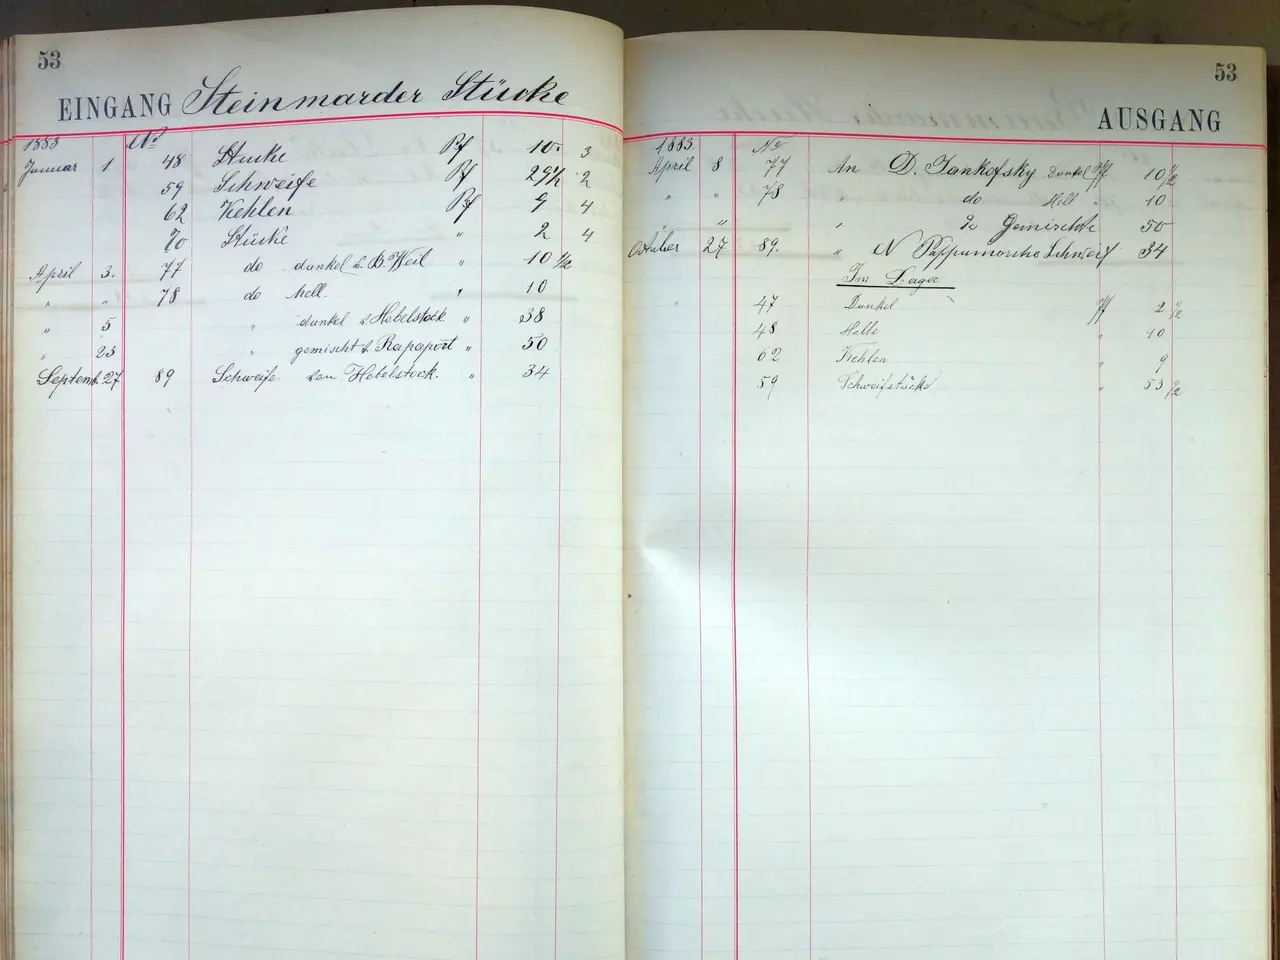 53
EINGANG Steinmarder Stücke
1883 No
Januar 1 48 Stücke Pf 10 3
59 Schweife Pf 29 1/2 2
62 Kehlen Pf 9 4
70 Stücke " 2 4
April 3. 77 do dunkel v. B. Weil " 10 1/2
" " 78 do hell. " 10
" 5 " dunkel v Hebelstock " 38
" 23 " gemischt v. Rapaport " 50
Septemb. 27 89 Schweife von Hebelstock. " 34
53
AUSGANG
1883. No
April 8 77 An D. Jankofsky dunkel Pf 10 1/2
" " 78 do Hell " 10
" " " do Gemischte 50
October 27 89. " N Schweif 34
Im Lager
47 Dunkel Pf 2 1/2
48 Helle " 10
62 Kehlen " 9
59 Schweifstücke " 53 1/2